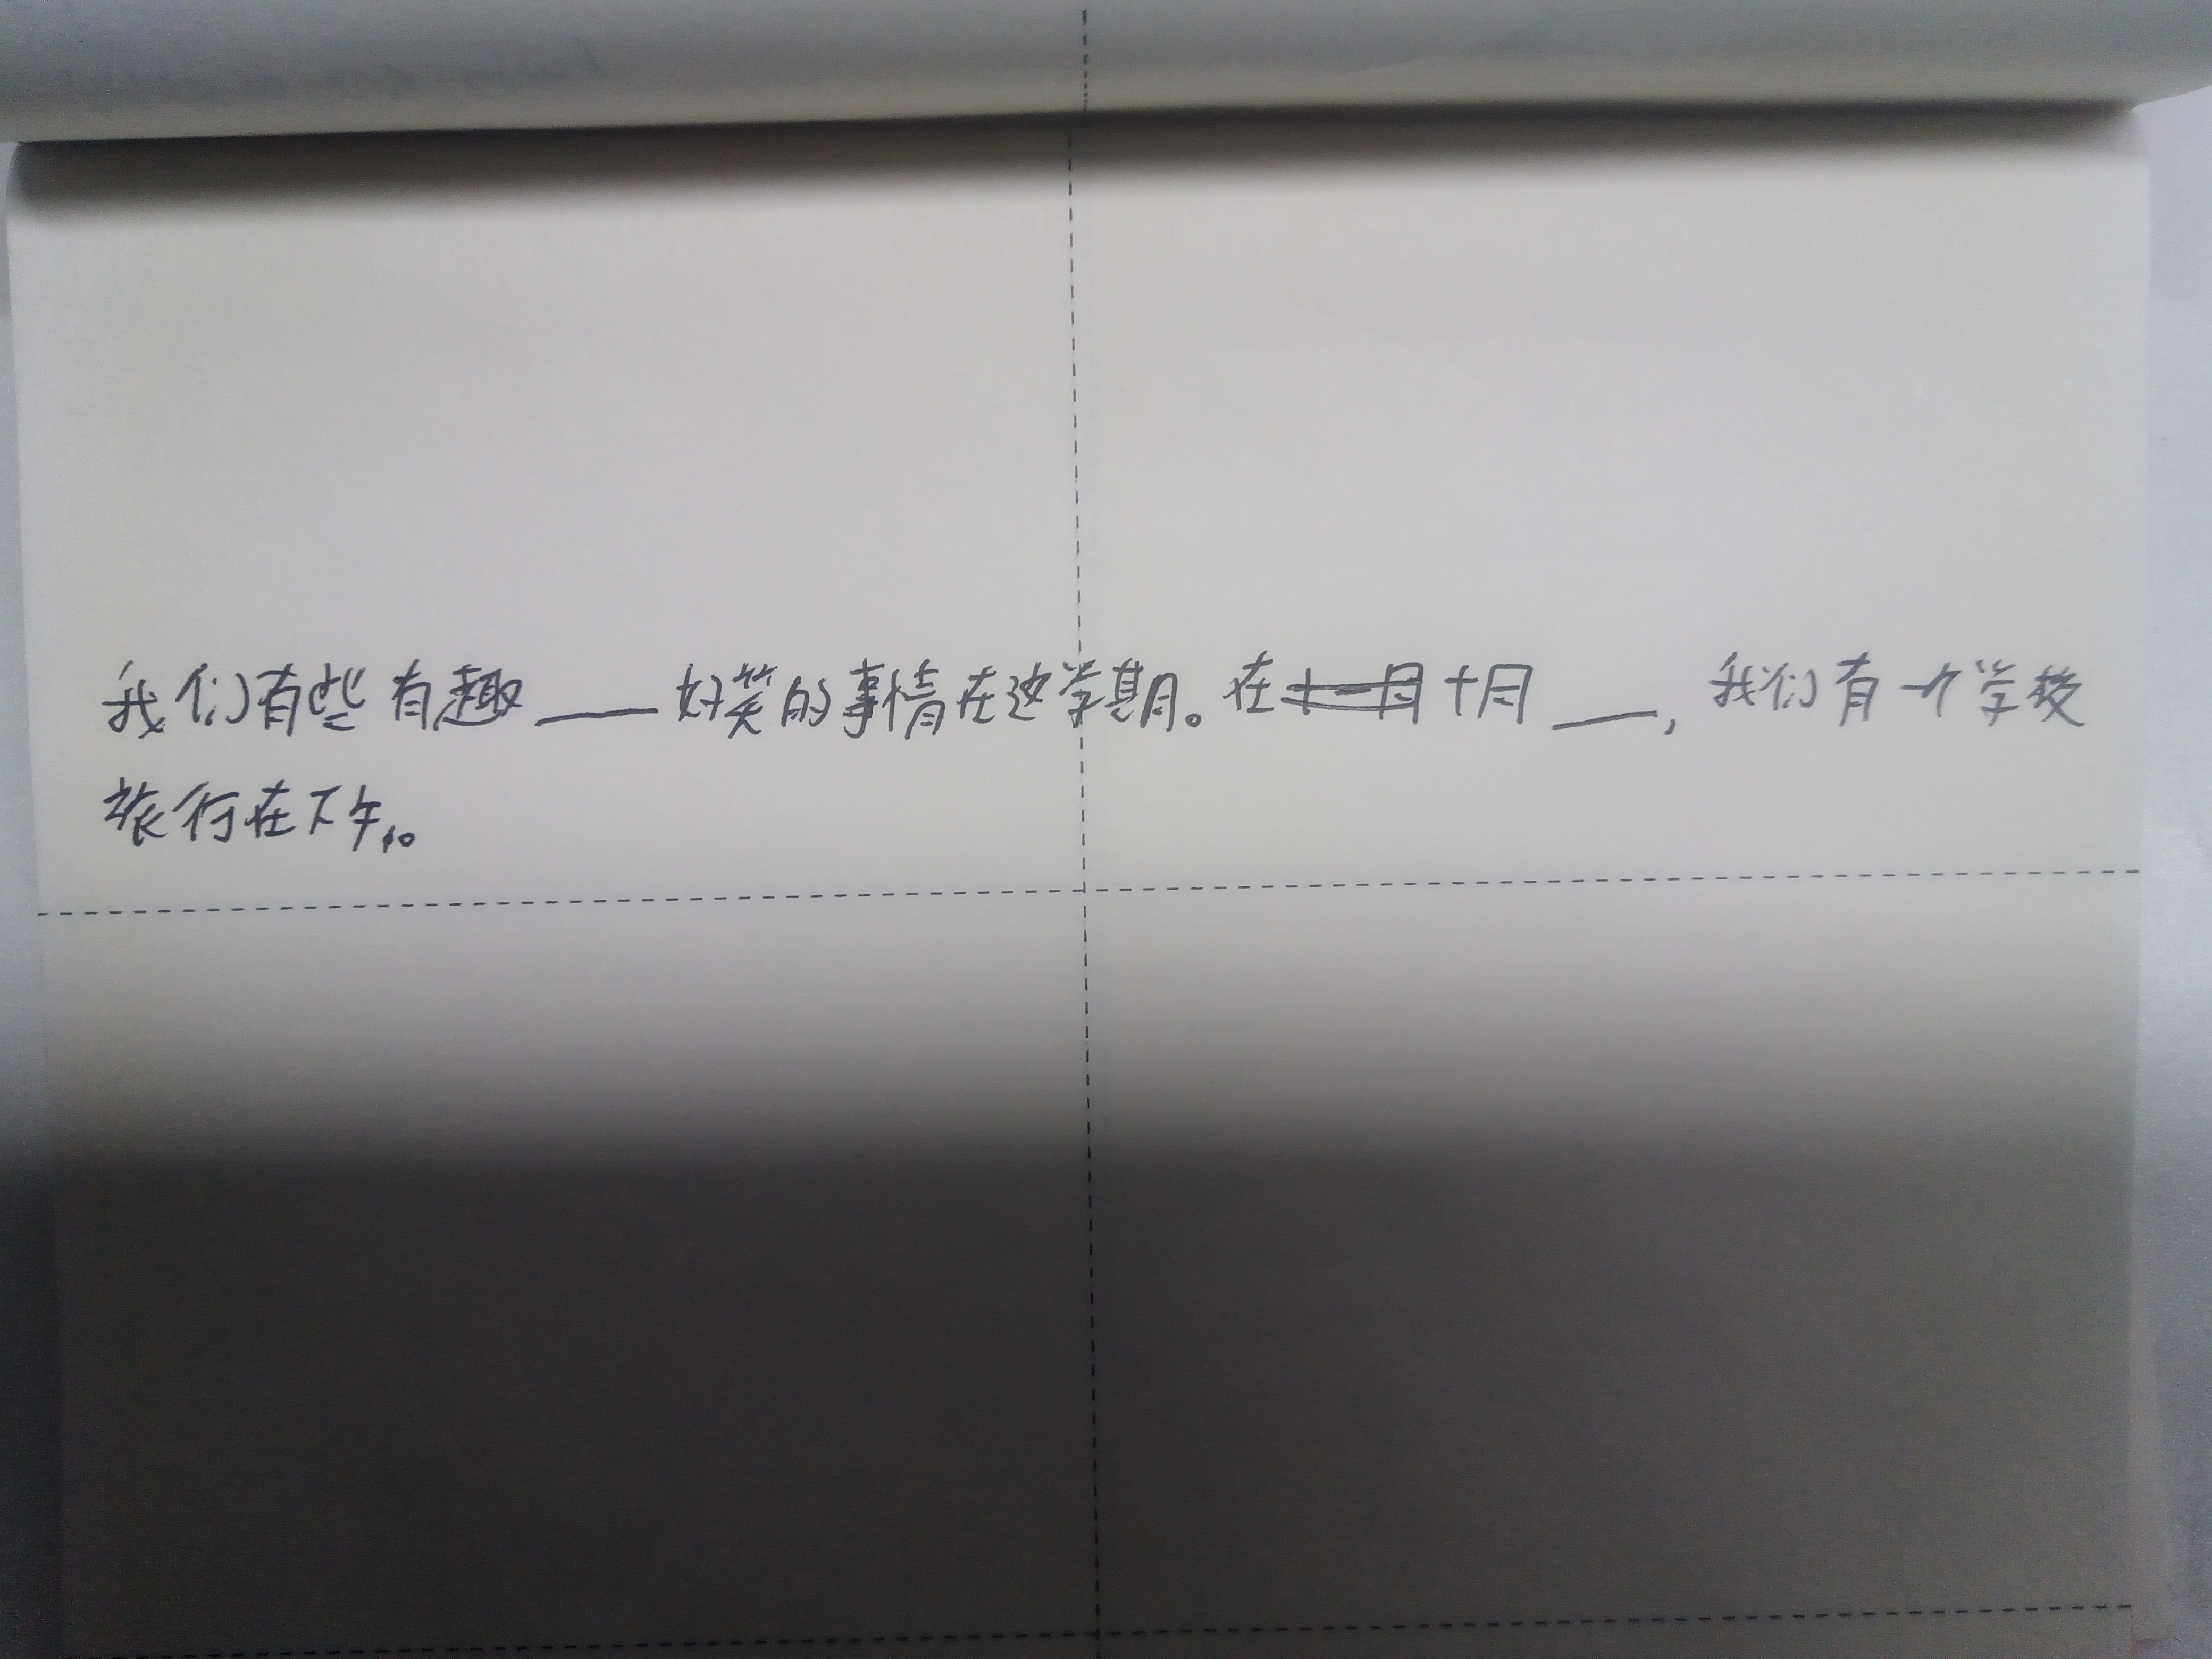 我们有些有趣____好笑的事情在这学期。在十一月十月____,我们有一个学校
旅行在下午。